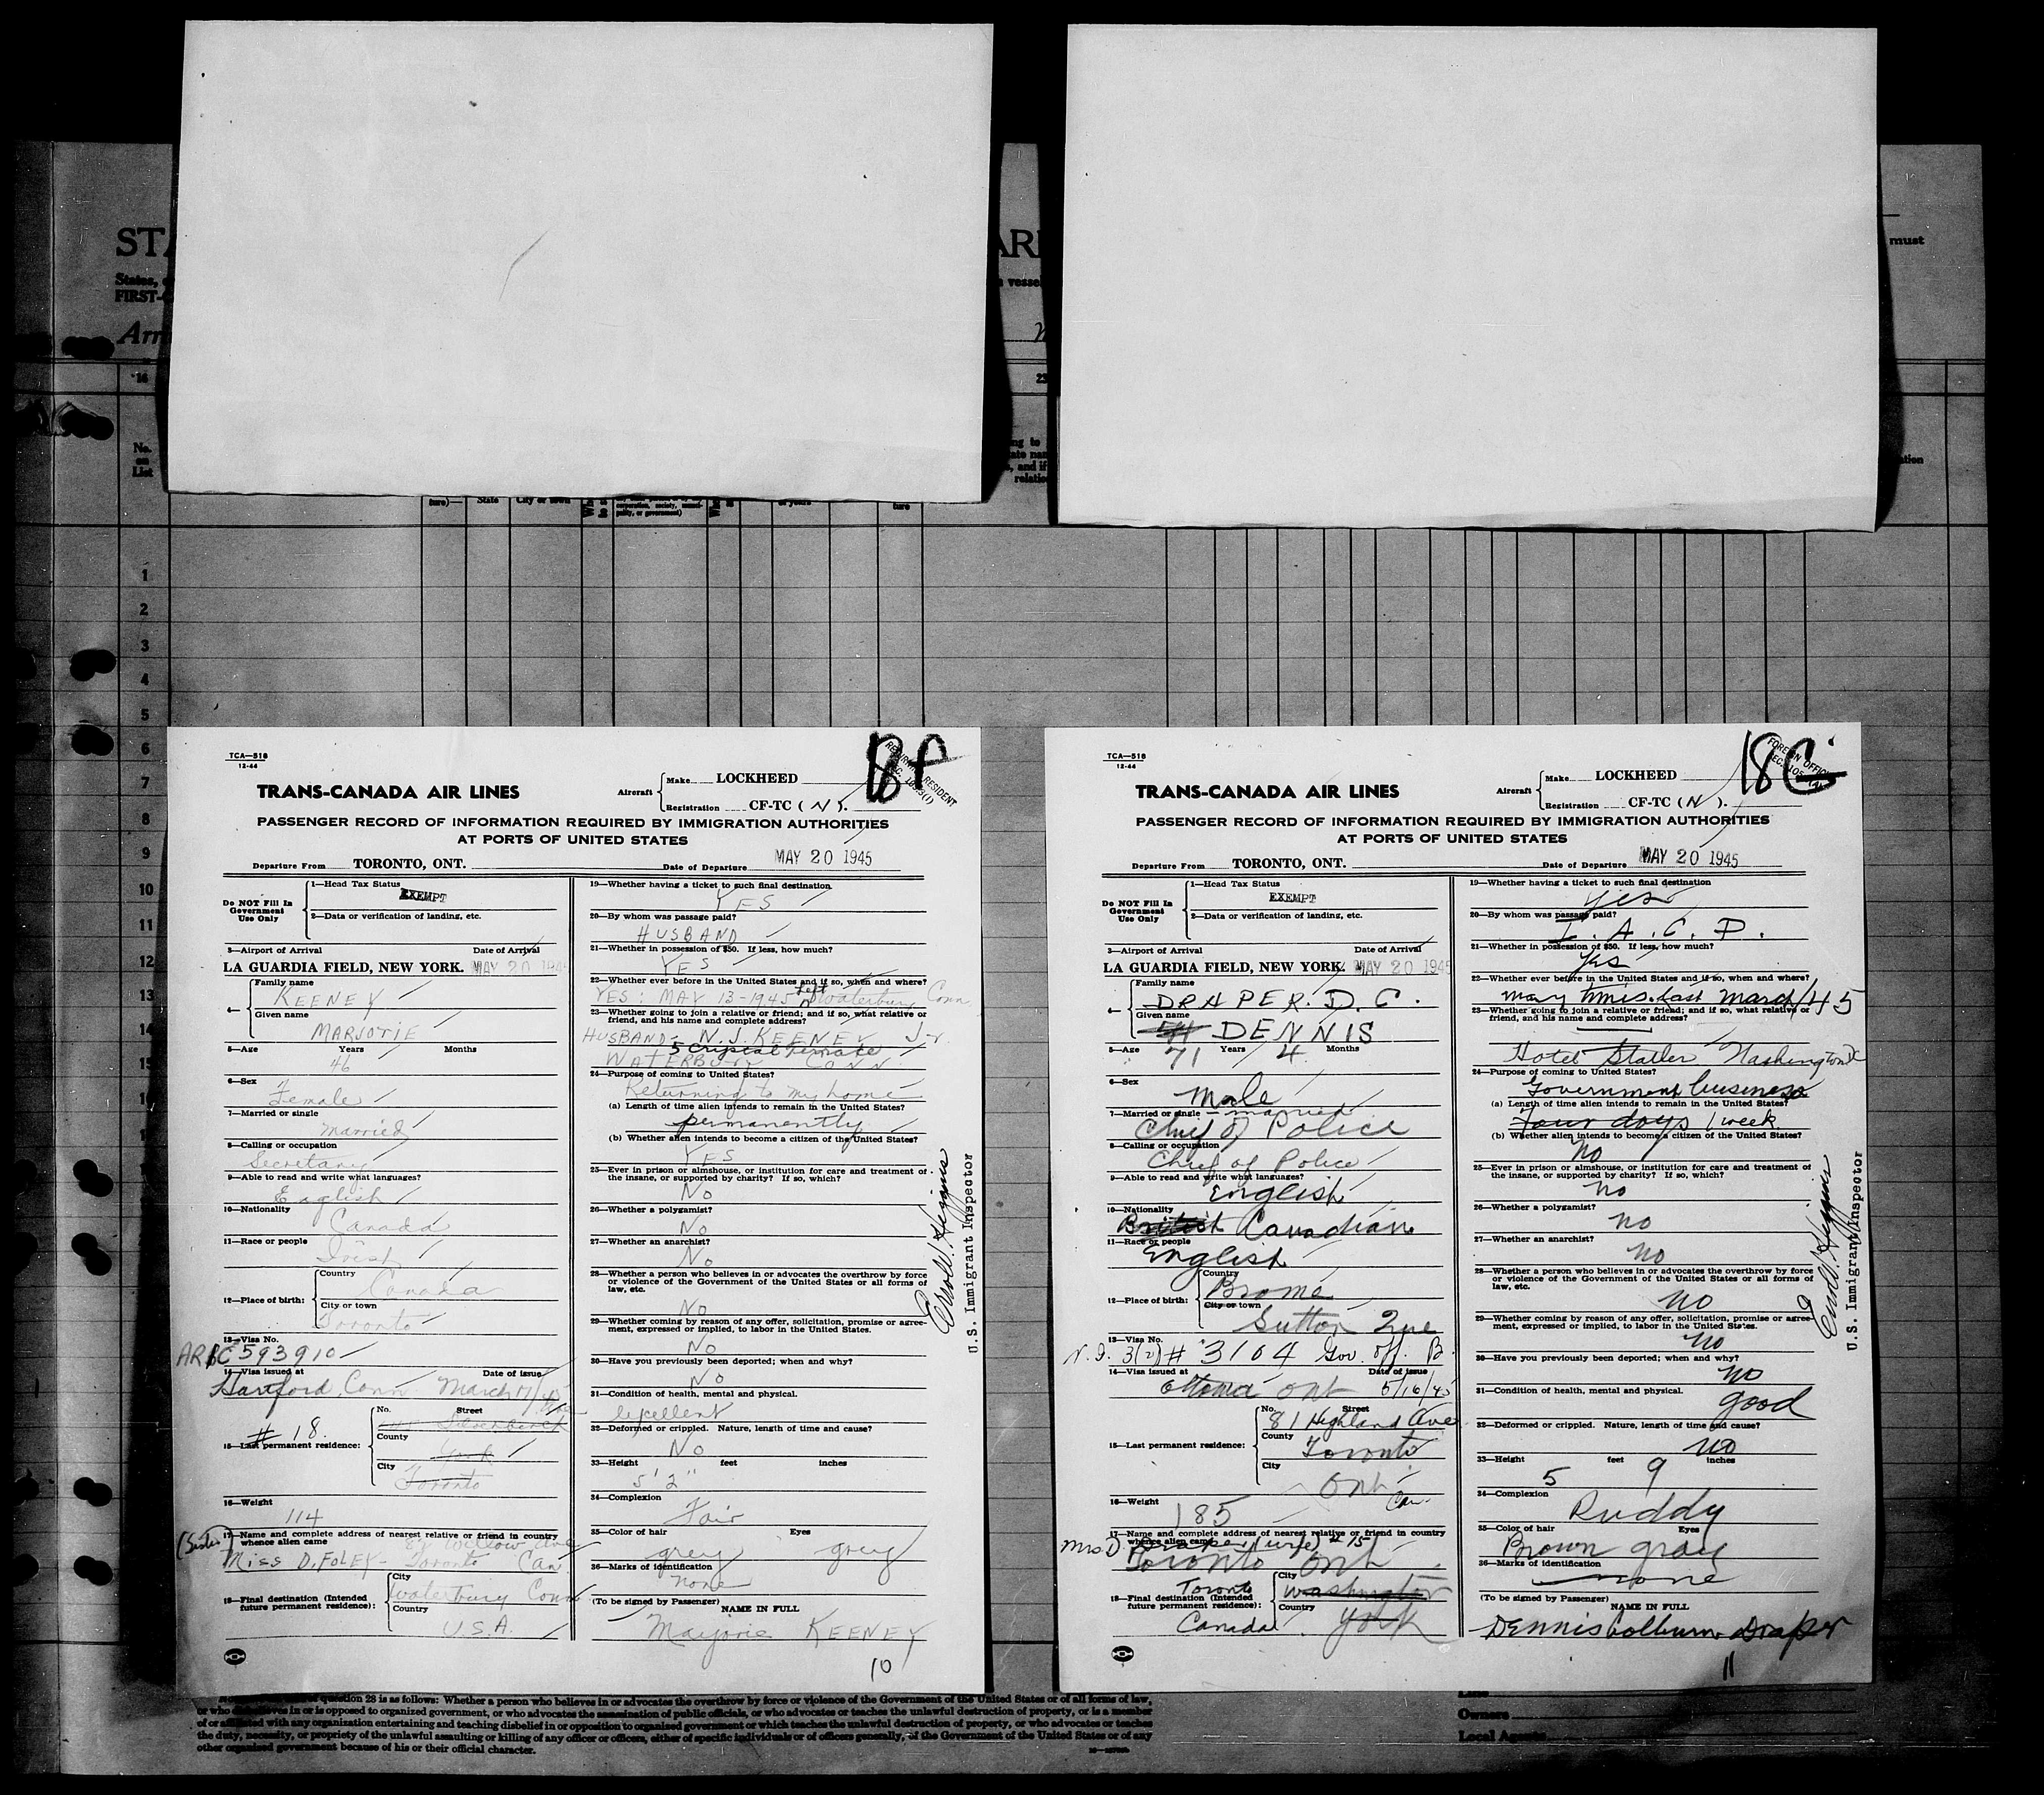 STA
ARI
must
States,
FIRST-
a vessel
Arr
16
23
No.
on
List
ture)—
State
City or town
corporation, society, munici-
pality, or government)
of years
ture
ation
1
2
3
4
5
6
7
8
9
10
11
12
13
14
15
TCA—518
12-44
TRANS-CANADA AIR LINES
Aircraft
Make LOCKHEED
Registration CF-TC (N).
RETURNING RESIDENT
PASSENGER RECORD OF INFORMATION REQUIRED BY IMMIGRATION AUTHORITIES
AT PORTS OF UNITED STATES
Departure From TORONTO, ONT. Date of Departure MAY 20 1945
Do NOT Fill In
Government
Use Only
1—Head Tax Status
EXEMPT
2—Data or verification of landing, etc.
3—Airport of Arrival Date of Arrival
LA GUARDIA FIELD, NEW YORK. MAY 20 194
4— Family name
KEENEY
Given name
MARJOTIE
5—Age Years Months
46
6—Sex
Female
7—Married or single
Married
8—Calling or occupation
Secretary
9—Able to read and write what languages?
English
10—Nationality
Canada
11—Race or people
Irish
12—Place of birth:
Country
Canada
City or town
Toronto
13—Visa No.
593910
14—Visa issued at Date of issue
Hartford, Conn. March 17/45
15—Last permanent residence:
# 18.
No. Street
County
York
City
Toronto
16—Weight
114
17—Name and complete address of nearest relative or friend in country
whence alien came
(Sister) Willow Ave
Miss D. FOLEY - Toronto Can.
18—Final destination (Intended
future permanent residence):
City
Waterbury Conn
Country
U.S.A.
19—Whether having a ticket to such final destination
YES
20—By whom was passage paid?
HUSBAND
21—Whether in possession of $50. If less, how much?
YES
22—Whether ever before in the United States and if so, when and where?
YES: MAY 13-1945 Left Waterbury Conn
23—Whether going to join a relative or friend; and if so, what relative or
friend, and his name and complete address?
HUSBAND: N.J. KEENEY Jr.
5 Crystal Terrace
WATERBURY CONN
24—Purpose of coming to United States?
Returning to my home
(a) Length of time alien intends to remain in the United States?
permanently
(b) Whether alien intends to become a citizen of the United States?
YES
25—Ever in prison or almshouse, or institution for care and treatment of
the insane, or supported by charity? If so, which?
No
26—Whether a polygamist?
No
27—Whether an anarchist?
No
28—Whether a person who believes in or advocates the overthrow by force
or violence of the Government of the United States or all forms of
law, etc.
No
29—Whether coming by reason of any offer, solicitation, promise or agree-
ment, expressed or implied, to labor in the United States.
No
30—Have you previously been deported; when and why?
No
31—Condition of health, mental and physical.
Excellent
32—Deformed or crippled. Nature, length of time and cause?
No
33—Height feet inches
5' 2"
34—Complexion
Fair
35—Color of hair Eyes
grey grey
36—Marks of identification
none
(To be signed by Passenger) NAME IN FULL
Marjorie KEENEY
10
U.S. Immigrant Inspector
TCA—518
12-44
TRANS-CANADA AIR LINES
Aircraft
Make LOCKHEED
Registration CF-TC (N).
18
FOREIGN OFFICIAL
PASSENGER RECORD OF INFORMATION REQUIRED BY IMMIGRATION AUTHORITIES
AT PORTS OF UNITED STATES
Departure From TORONTO, ONT. Date of Departure MAY 20 1945
Do NOT Fill In
Government
Use Only
1—Head Tax Status
EXEMPT
2—Data or verification of landing, etc.
3—Airport of Arrival Date of Arrival
LA GUARDIA FIELD, NEW YORK. MAY 20 1945
4— Family name
DRAPER. D.C.
Given name
DENNIS
5—Age Years Months
71 4
6—Sex
Male
7—Married or single — married
Chief of Police
8—Calling or occupation
Chief of Police
9—Able to read and write what languages?
English
10—Nationality
British Canadian
11—Race or people
English
12—Place of birth:
Country
Brome
City or town
Sutton Que
13—Visa No.
3(2) # 3104 Gov. Off. B.
14—Visa issued at Date of issue
Ottawa Ont 5/16/45
15—Last permanent residence:
No. Street
81 Highland Ave
County
Toronto
City
Ont
Can.
16—Weight
185
17—Name and complete address of nearest relative or friend in country
whence alien came
Mrs. D. Draper (wife) # 15
Toronto Ont
18—Final destination (Intended
future permanent residence):
Toronto
Canada
City
Washington
Country
York
19—Whether having a ticket to such final destination
Yes
20—By whom was passage paid?
I.A.C.P.
21—Whether in possession of $50. If less, how much?
Yes
22—Whether ever before in the United States and if so, when and where?
many times. Last March/45
23—Whether going to join a relative or friend; and if so, what relative or
friend, and his name and complete address?
Hotel Statler Washington DC
24—Purpose of coming to United States?
Government business
(a) Length of time alien intends to remain in the United States?
Four days 1 week
(b) Whether alien intends to become a citizen of the United States?
No
25—Ever in prison or almshouse, or institution for care and treatment of
the insane, or supported by charity? If so, which?
no
26—Whether a polygamist?
no
27—Whether an anarchist?
no
28—Whether a person who believes in or advocates the overthrow by force
or violence of the Government of the United States or all forms of
law, etc.
no
29—Whether coming by reason of any offer, solicitation, promise or agree-
ment, expressed or implied, to labor in the United States.
no
30—Have you previously been deported; when and why?
no
31—Condition of health, mental and physical.
good
32—Deformed or crippled. Nature, length of time and cause?
no
33—Height feet inches
5 9
34—Complexion
Ruddy
35—Color of hair Eyes
Brown gray
36—Marks of identification
none
(To be signed by Passenger) NAME IN FULL
Dennis Colburn Draper
11
U.S. Immigrant Inspector
question 28 is as follows: Whether a person who believes in or advocates the overthrow by force or violence of the Government of the United States or of all forms of law,
or who disbelieves in or is opposed to organized government, or who advocates the assassination of public officials, or who advocates or teaches the unlawful destruction of property, or is a member
of or affiliated with any organization entertaining and teaching disbelief in or opposition to organized government or which teaches the unlawful destruction of property, or who advocates or teaches
the duty, necessity, or propriety of the unlawful assaulting or killing of any officer or officers, either of specific individuals or of officers generally, of the Government of the United States or of any
other organized government because of his or their official character.
Line
Owners
Local Agents